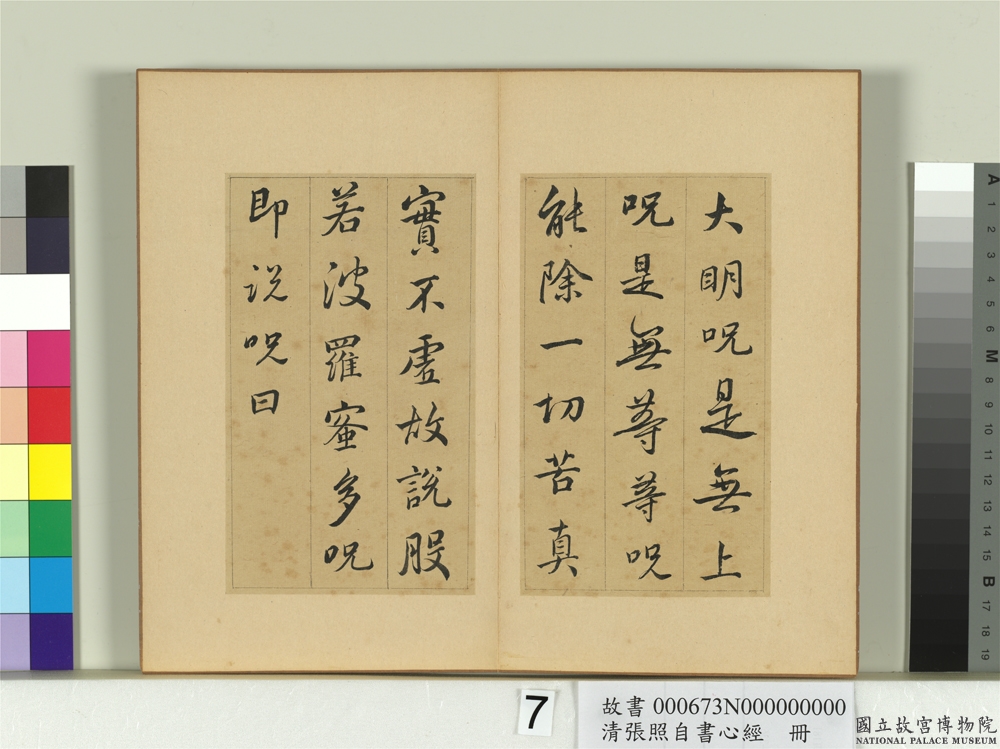 大明呪是無上
呪是無等等呪
能除一切苦真
實不虛故說般
若波羅蜜多呪
即說呪曰
7
故書 000673N000000000
清張照自書心經 冊
國立故宮博物院
NATIONAL PALACE MUSEUM
A 1 2 3 4 5 6 M 8 9 10 11 12 13 14 15 B 17 18 19